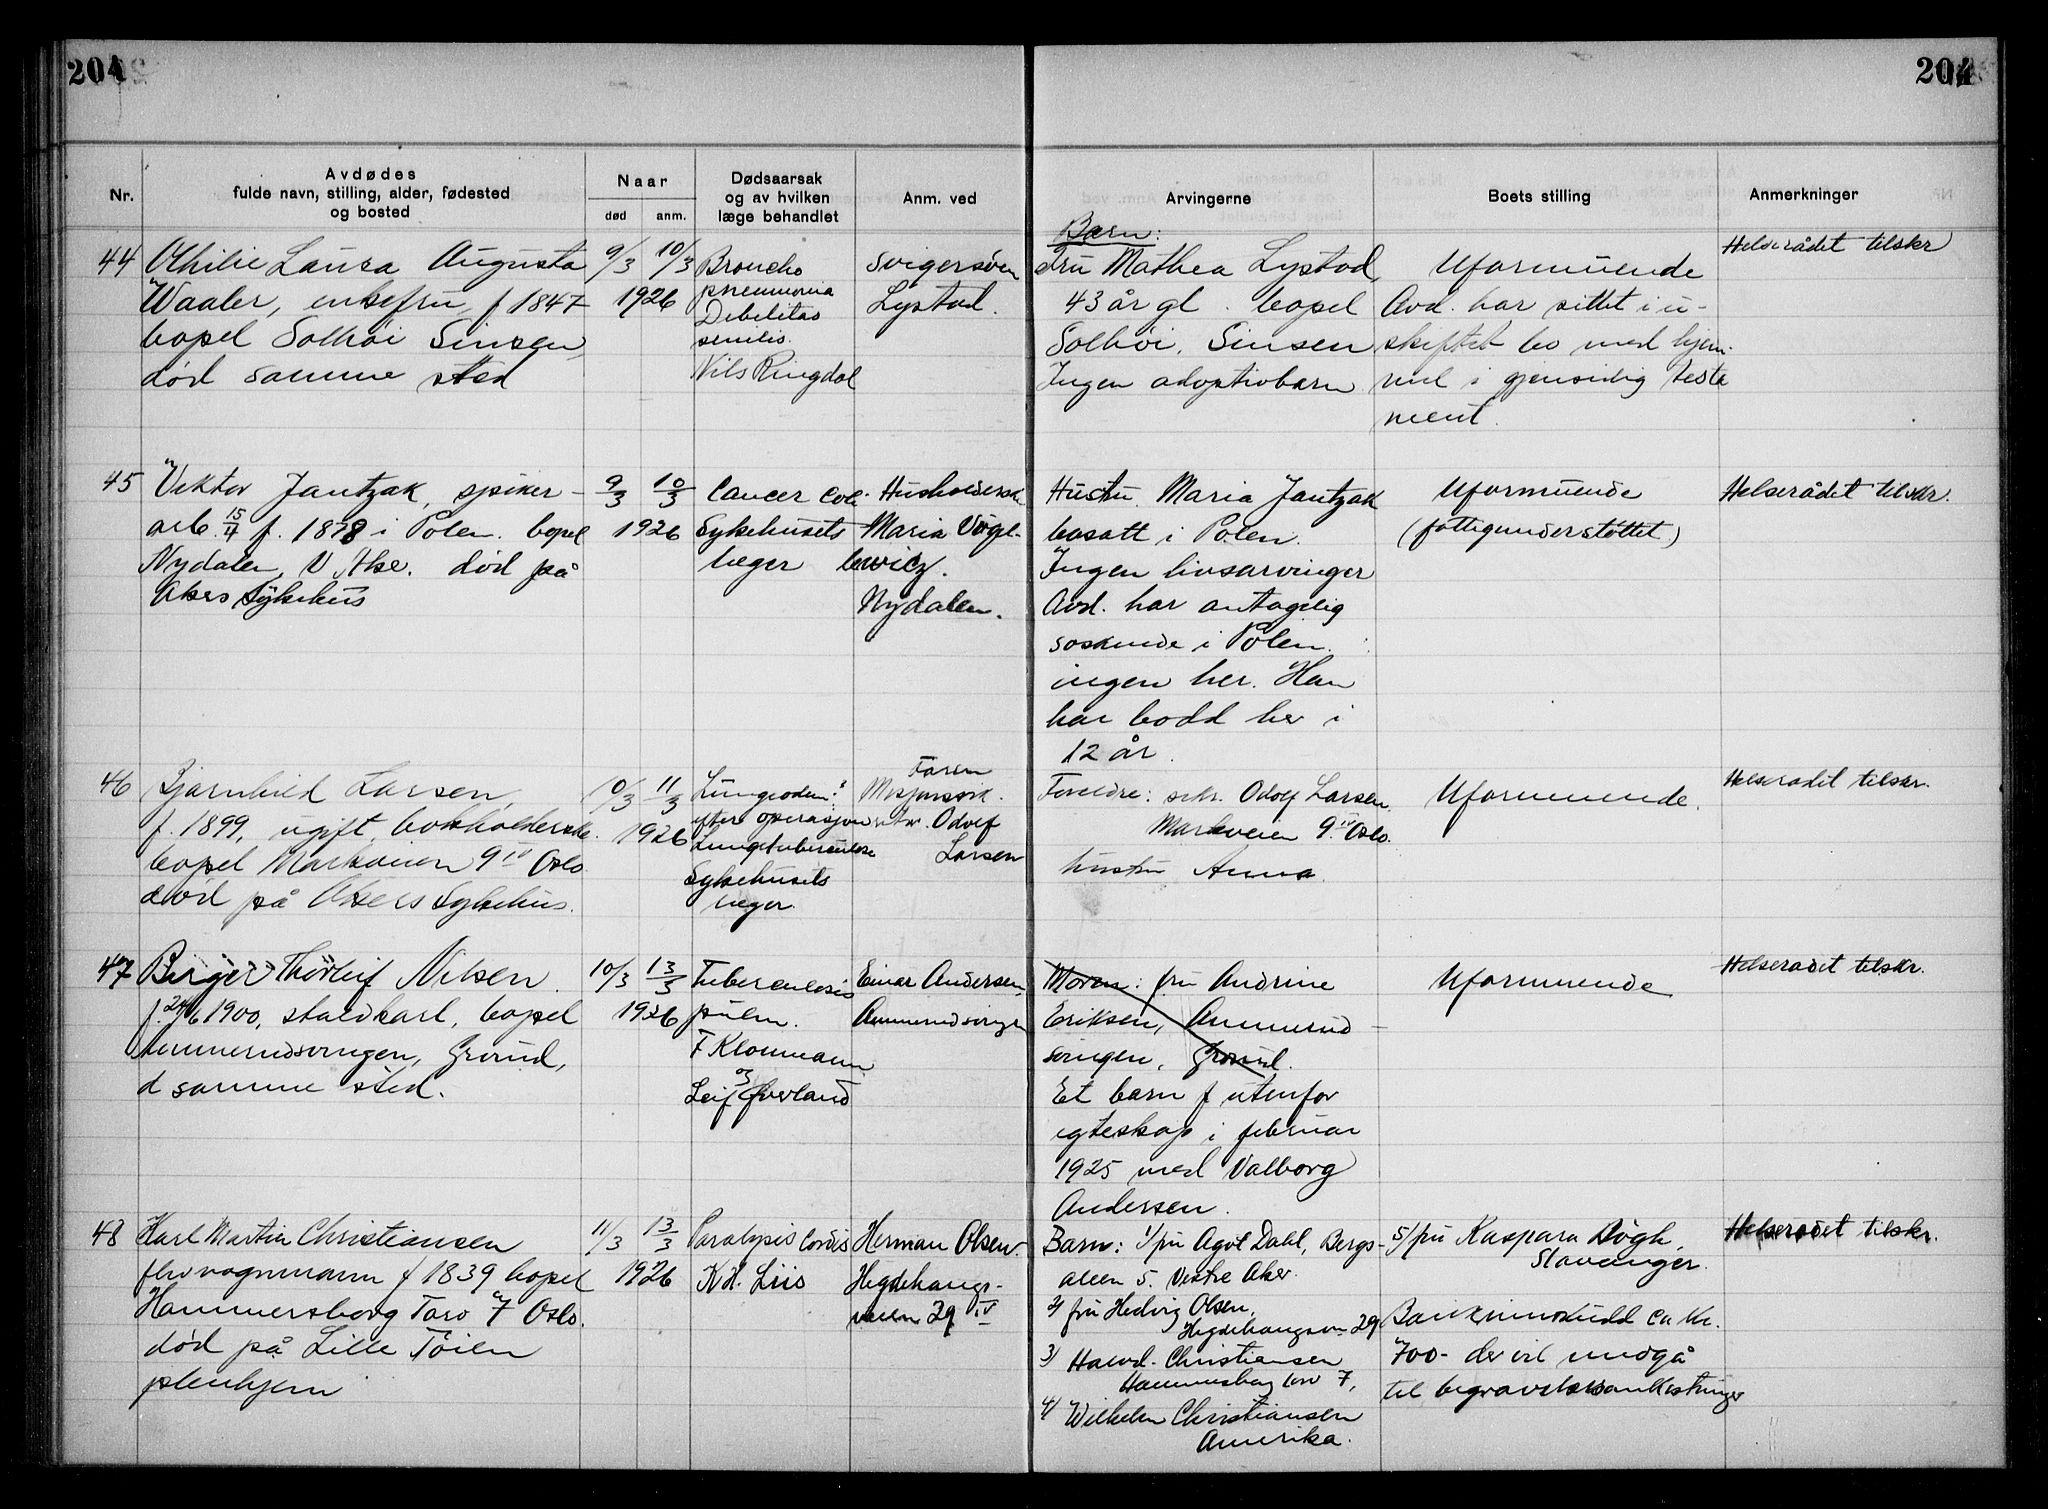 204
204
Nr.
Avdødes
fulde navn, stilling, alder, fødested
og bosted
Naar
død
anm.
Dødsaarsak
og av hvilken
læge behandlet
Anm. ved
Arvingerne
Boets stilling
Anmerkninger
44
Othilie Laura Augusta
Waaler, enkefru, f 1847
bopel Solhøi Sinsen,
død samme sted
9/3
10/3
1926
Broncho
pneumonia
Debilitas
senilis.
Nils Ringdal
Svigersøn
Lystad.
Barn:
Fru Mathea Lystad,
43 år gl. bopel
Solhøi, Sinsen
Ingen adoptivbarn
Uformuende
Avd. har sittet i u-
skiftet bo med hjem-
mel i gjensidig testa
ment.
Helserådet tilskr
45
Viktor Jantzak, spiker-
arb. f. 1878 i Polen. bopel
Nydalen, V Ake. død på
Akers Sykehus
9/3
10/3
1926
Cancer coli
Sykehusets
læger
Husholdersk
Maria Vogel-
bewicz.
Nydalen.
Hustru Maria Jantzak
bosatt i Polen.
Ingen livsarvinger
Avd. har antagelig
søskende i Polen.
ingen her. Han
har bodd her i
12 år.
Uformuende
(fattigunderstøttet)
Helserådet tilskr.
46
Bjarnhild Larsen,
f. 1899, ugift, bokholderske.
bopel Markveien 9 IV Oslo
død på Akers Sykehus.
10/3
11/3
1926
Lungeødem?
efter operasjon
Lungetuberculose
Sykehusets
læger.
Faren
Misjonssek.
retær. Odolf
Larsen
Foreldre: sekr. Odolf Larsen,
Markveien 9 IV Oslo.
hustru Anna.
Uformuende.
Helserådet tilskr.
47
Birger Thorleif Nilsen.
f. 24/6 1900, staldkarl, bopel
Ammerudsvingen, Grorud,
d samme sted.
10/3
13/3
1926
Tuberculosis
pulm.
F Kloumann
og
Leif Øverland
Einar Andersen,
Ammerudsvingen
Moren: fru Andrine
Eriksen, Ammerud-
svingen, Grorud.
Et barn f utenfor
egteskap i februar
1925 med Valborg
Andersen.
Uformuende
Helserådet tilskr.
48
Karl Martin Christiansen
fhv vognmann f 1839 bopel
Hammersborg Torv 7 Oslo.
død på Lille Tøien
pleiehjem
11/3
13/3
1926
Paralysis Cordis
Kr. Liis
Herman Olsen.
Hegdehaugs-
veien 29 IV
Barn: 1/ fru Agot Dahl, Bergs-
aleen 5. Vestre Aker.
2/ fru Hedvig Olsen,
Hegdehaugsvn 29
3/ Haavd. Christiansen
Hammersborg torv 7,
4/ Wilhelm Christiansen
Amerika.
5/ fru Kaspara Døgh,
Stavanger.
Bankinnskudd ca kr.
700- der vil medgå
til begravelsesomkostninger
Helserådet tilskr.